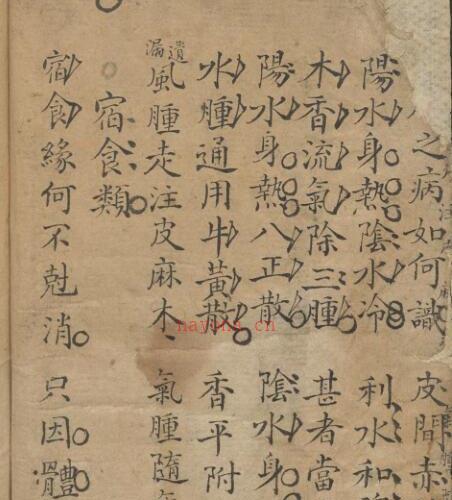 之病如何識 皮間赤
陽水身熱陰水冷 利水和
木香流氣除三腫 甚者當
陽水身熱八正散 陰水身
水腫通用牛黃散 香平附
遺漏
風腫走注皮麻木 氣腫隨
宿食類
宿食緣何不尅消 只因體